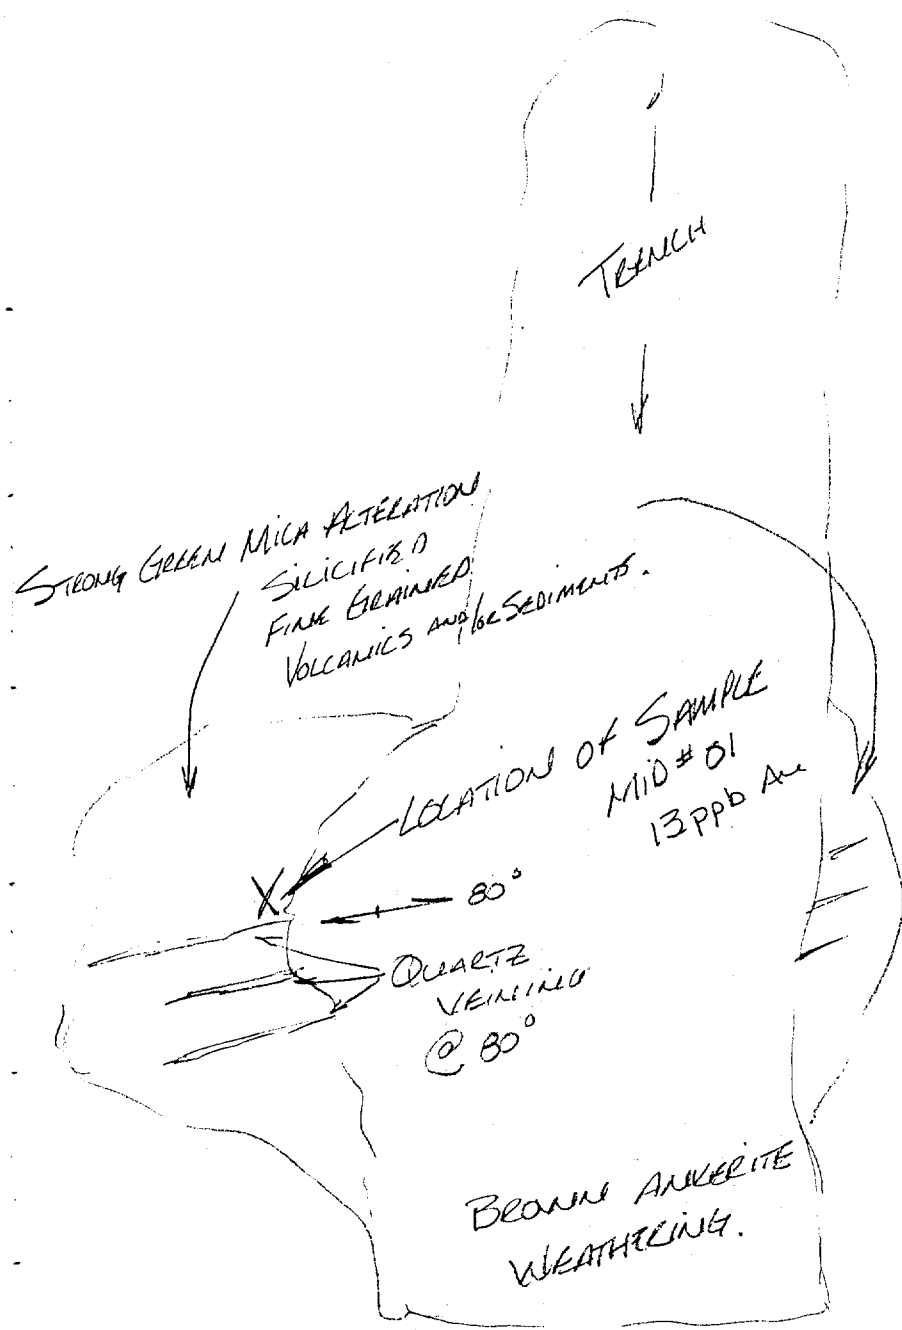 TRENCH
STRONG GREEN MICA ALTERATION
SILICIFIED
FINE GRAINED
VOLCANICS AND/OR SEDIMENTS.
LOCATION OF SAMPLE
MID # 01
13 ppb Au
X
80°
QUARTZ
VEINING
@ 80°
BROWN ANKERITE
WEATHERING.